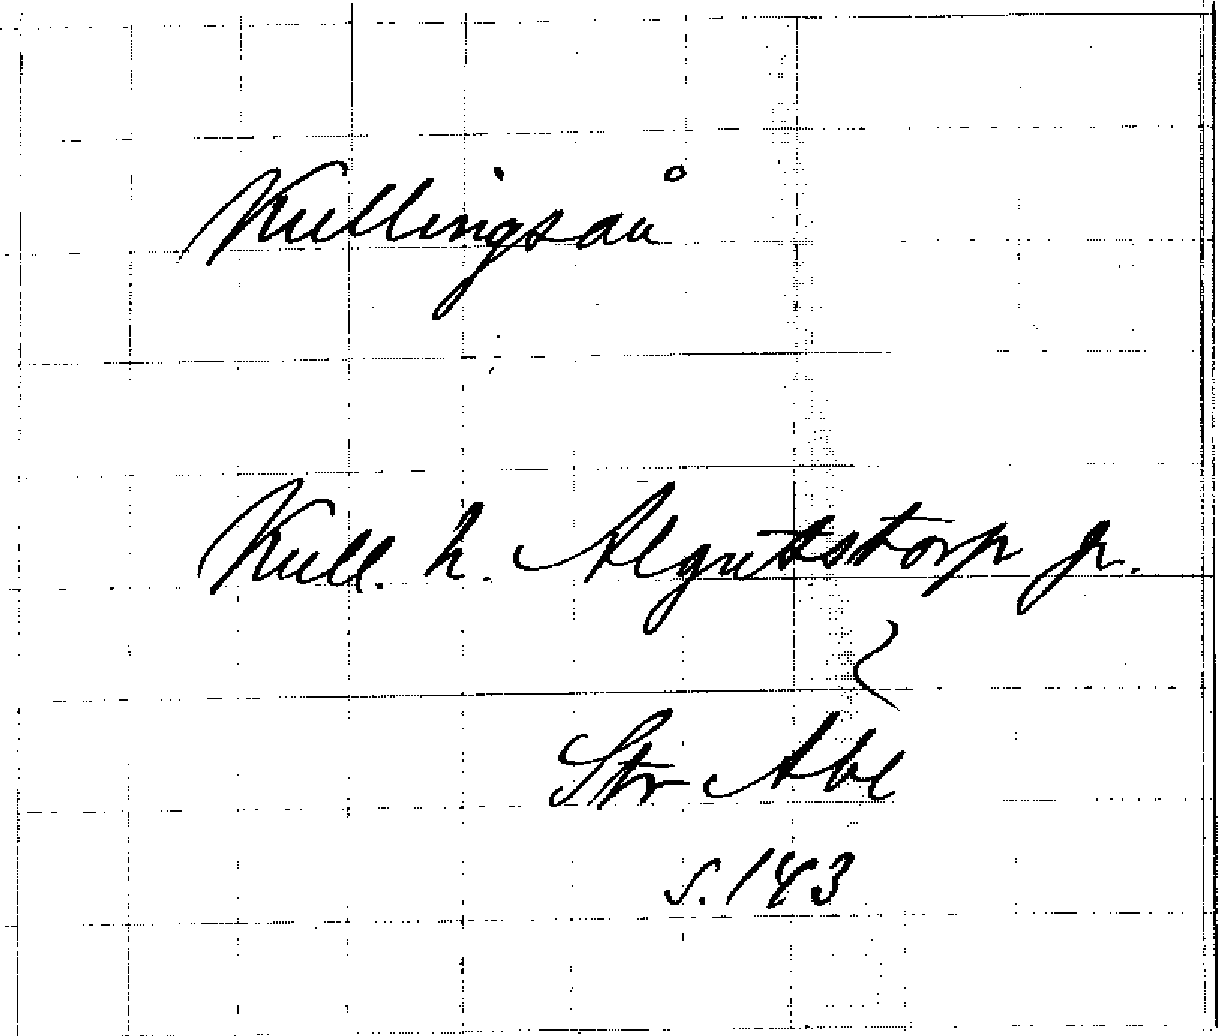 Kullingsån
Kull. h. Algutstorp sn.
Str Abe
s. 143